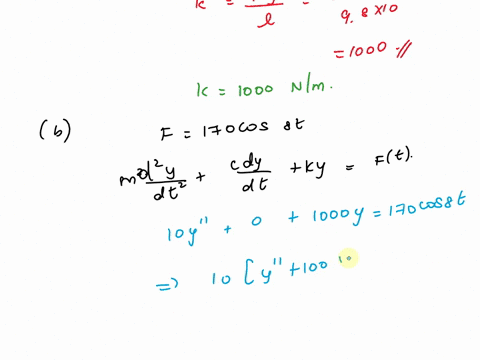 k =
l
9.8 × 10
= 1000 //
k = 1000 N/m.
(b) F = 170 cos 8t
m d²y/dt² + c dy/dt + ky = F(t).
10y'' + 0 + 1000y = 170 cos 8t
⇒ 10 [ y'' + 100